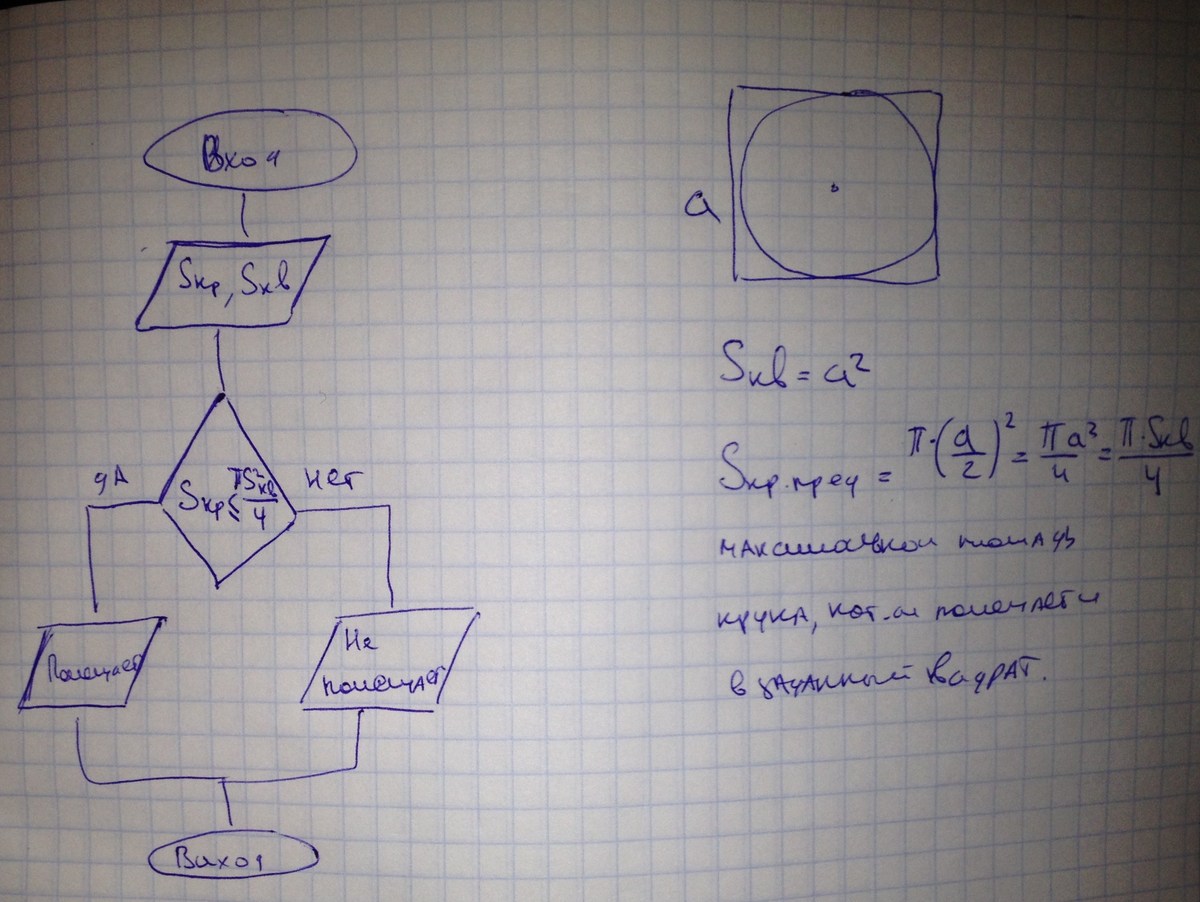 Вход
Sкр, Sкв
да
Sкр ≤ πS²кв/4
нет
Помещает
Не
помещает
Выход
a
Sкв = a²
Sкр.пред = π·(a/2)² = πa²/4 = π·Sкв/4
площадь
круга, кот-й помещается
в заданный квадрат.